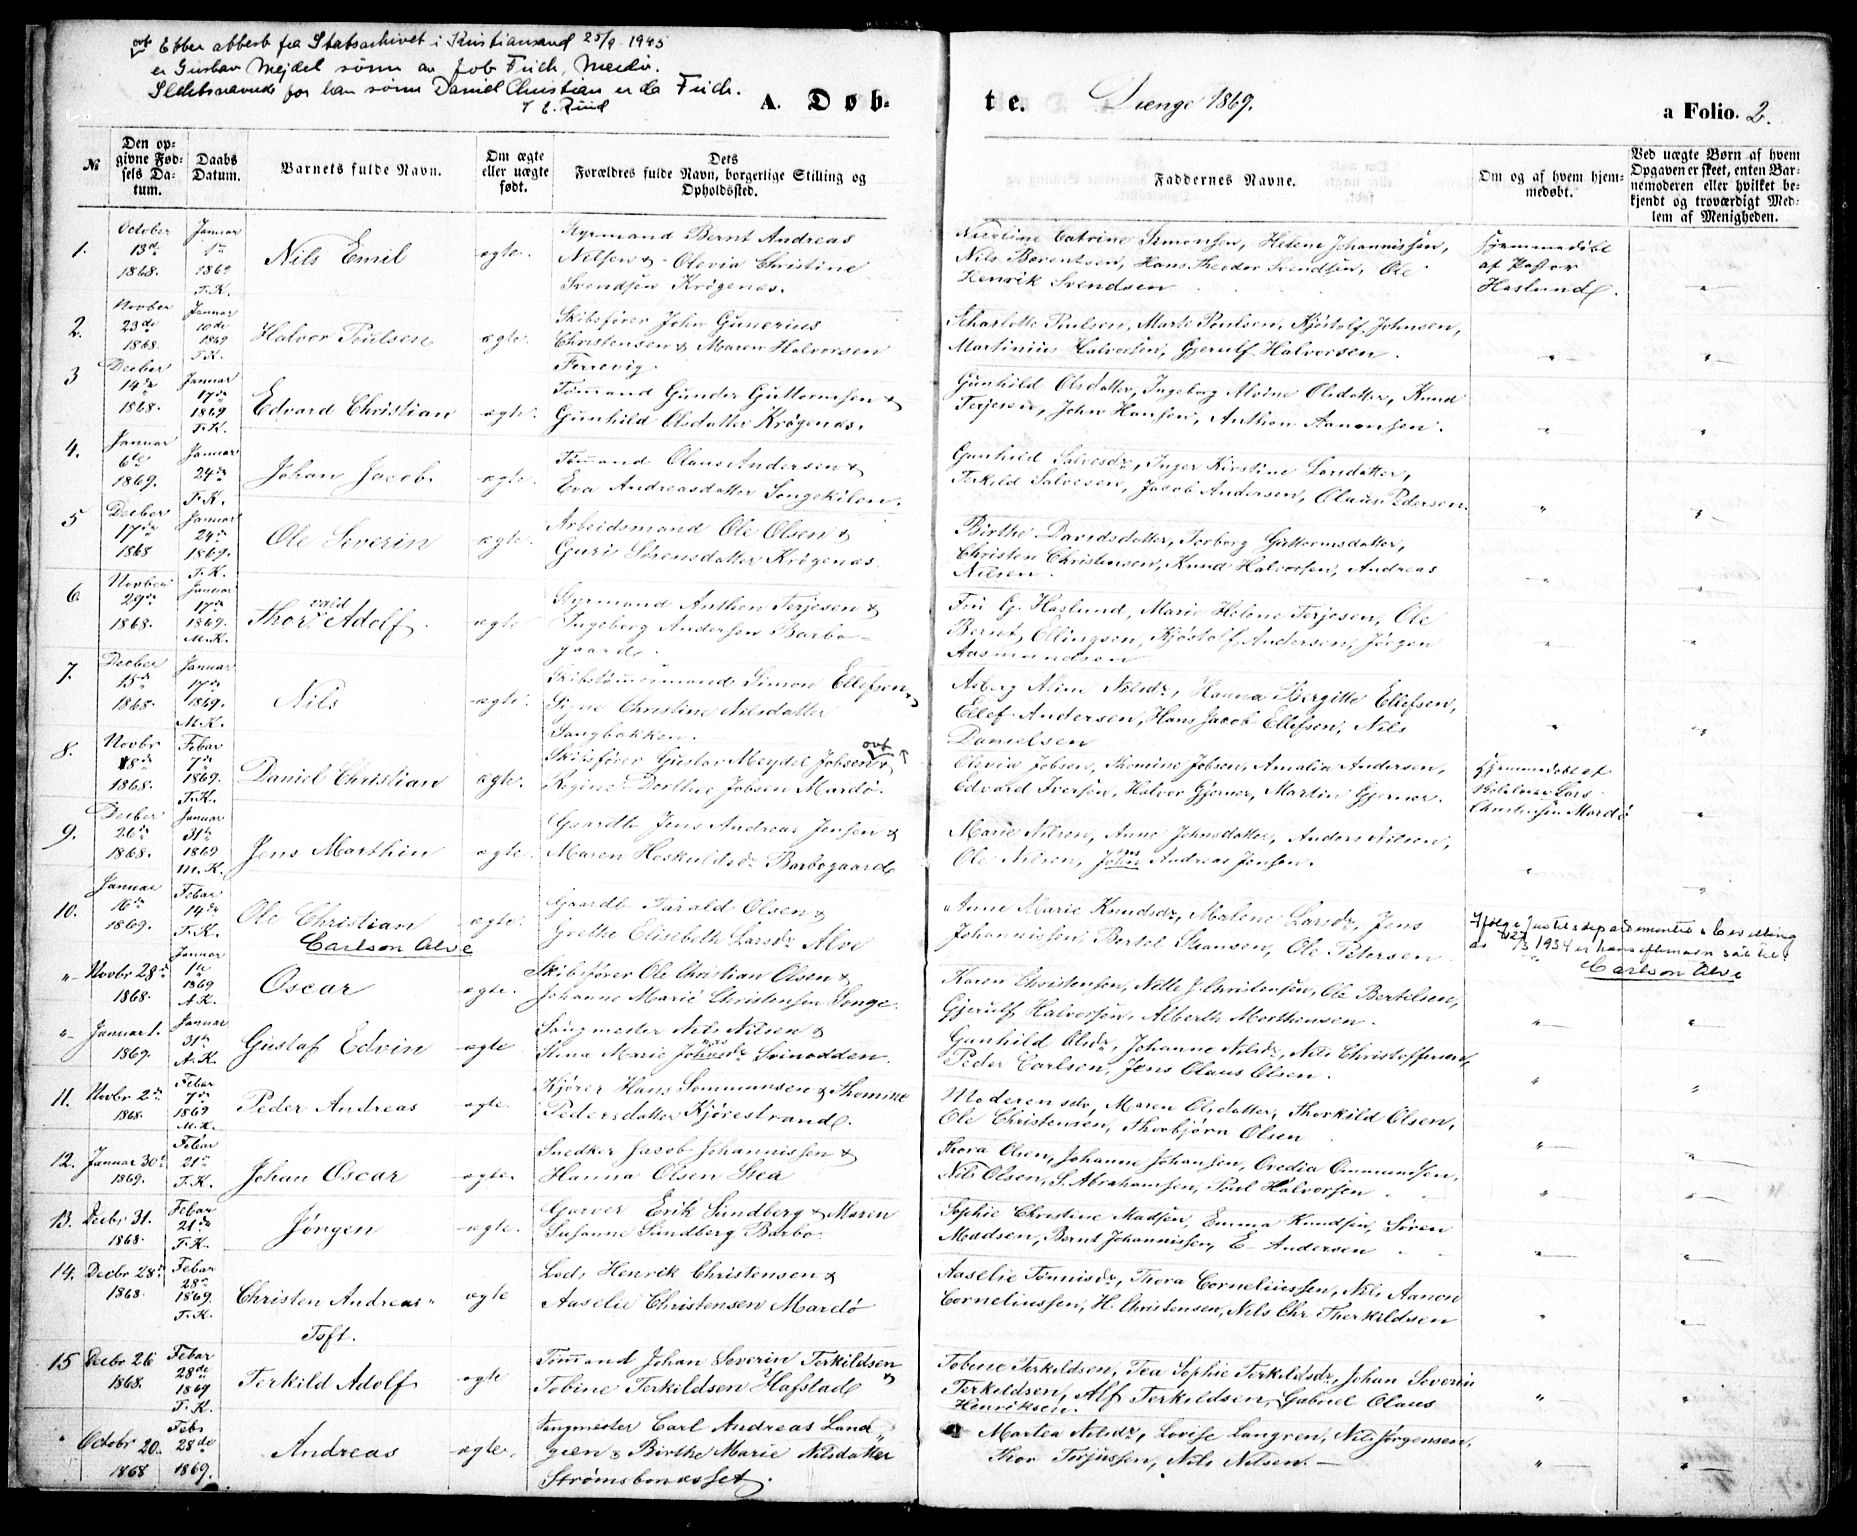 ovf Efter attest fra Statsarkivet i Kristiansand 25/9 1945
er Gustav Mejdel sønn av Job Fuch, Merdø.
Slektsnavnet for han sønn Daniel Christian er da Fuch.
A. Døb-
te.
Drenge 1869.
a Folio. 2.
№
Den op-
givne Fød-
sels Da-
tum.
Daabs
Datum.
Barnets fulde Navn.
Om ægte
eller uægte
født.
Dets
Forældres fulde Navn, borgerlige Stilling og
Opholdssted.
Faddernes Navne.
Om og af hvem hjem-
medøbt.
Ved uægte Børn af hvem
Opgaven er skeet, enten Bar-
nemoderen eller hvilket be-
kjendt og troværdigt Med-
lem af Menigheden.
1.
October
13de
1868.
Januar
1ste
1869
T.K.
Nils Emil
ægte.
Styrmand Bernt Andreas
Nilsen & Olevia Christine
Svendsen Krögenæs.
Nicoline Catrine Simonsen, Helene Johannissen,
Nils Berentsen, Hans Theodor Svendsen, Ole
Henrik Svendsen
Hjemmedöbt
af Pastor
Haslund.
2.
Novber
23de
1868.
Januar
10de
1869
T.K.
Halvor Poulsen
ægte.
Skibsfører John Gunerius
Christensen & Maren Halvorsen
Ferrevig.
Scharlotte Poulsen, Marti Poulsen, Kjöstolf Johnsen,
Martinius Halvorsen, Gjerulf Halvorsen.
3
Decber
14de
1868.
Januar
17de
1869
T.K.
Edvard Christian
ægte.
Tömmand Gunder Guttormsen &
Gunhild Olsdatter Krögenæs.
Gunhild Olsdatter, Ingeborg Alvine Olsdatter, Knud
Terjesen, John Hansen, Anthon Aanonsen.
4.
Januar
6te
1869.
Januar
24de
T.K.
Johan Jacob.
ægte.
Tömmand Olaus Andersen &
Eva Andreasdatter Songekilen.
Gunhild Salvesdr, Inger Kirstine Larsdatter,
Terkild Salvesen, Jacob Andersen, Olaus Pedersen.
5
Decber
17de
1868
Januar
24de
1869.
T.K.
Ole Severin
ægte.
Arbeidsmand Ole Olsen &
Guri Sørensdatter Krögenæs.
Birthe Davidsdatter, Torborg Guttormsdatter,
Christen Christensen, Knud Halvorsen, Andreas
Nilsen.
6.
Novber
29de
1868.
Januar
17de
1869.
M.K.
Thorvald Adolf.
ægte
Styrmand Anthon Terjesen &
Ingeborg Andersen Barbo-
gaard.
Fru G. Haslund, Marie Helene Terjesen, Ole
Bernt Ellingsen, Kjöstolf Andersen, Jörgen
Aasmundsen
7.
Decber
15de
1868.
Januar
17de
1869.
M.K.
Nils
ægte.
Skibstömmermand Simon Ellefsen &
Signe Christine Nilsdatter
Sangbakken.
Asberg Aline Nilsdr, Hanna Bergitte Ellefsen,
Ellef Andersen, Hans Jacob Ellefsen, Nils
Danielsen
8.
Novbr
18de
1868.
Febar
7de
1869.
T.K.
Daniel Christian
ægte.
Skibsfører Gustav Meydel Jobsen & ovf
Regine Dorthee Jobsen Mardö.
Olevia Jobsen, Thomine Jobsen, Amalia Andersen,
Edvard Iversen, Halvor Gjerner, Martin Gjerner.
Hjemmedöbt af
Skolelærer Lars
Christensen Mardö
9.
Decber
26de
1868.
Januar
31te
1869
M.K.
Jens Marthin
ægte.
Gaardb Jens Andreas Jensen &
Maren Hoskuldsdr Barbogaard
Marie Nilsen, Anne Johnsdatter, Anders Nilsen,
Ole Nilsen, John Andreas Jensen.
10.
Januar
16de
1869.
Febar
14de
T.K.
Ole Christian
Carlson Alve
ægte.
Gaardb Tarald Olsen &
Grethe Elisebeth Larsdr Alve
Anne Marie Knudsdr, Malene Larsdr, Jens
Johannissen, Bertel Hansen, Ole Petersen
Ifølge Justisdepartementets bevilling
av 27/3 1934 er hans efternavn sat til:
Carlson Alve
Novbr 28de
1868.
Januar
1ste
1869
A.K.
Oscar
ægte.
Skibsfører Ole Christian Olsen &
Johanne Marie Christensen Songe.
Karen Christensen, Nille J. Christensen, Ole Bertelsen,
Gjerulf Halvorsen, Alberth Morthensen.
Januar 1.
1869.
Januar
31te
A.K.
Gustaf Edvin
ægte
Sangmester Nils Nilsen &
Stina Marie Johnsdr Svinodden.
Gunhild Olsdr, Johanne Nilsdr, Nils Christoffersen,
Peder Carlsen, Jens Olaus Olsen.
11.
Novbr 2de
1868.
Febar
7de
1869
M.K.
Peder Andreas
ægte
Kjører Hans Sommunsen & Thomine
Pedersdatter Kjörestrand.
Moderen selv, Maren Olsdatter, Thorkild Olsen,
Ole Christensen, Thorbjörn Olsen
12.
Januar 30te
1869.
Febar
21de
T.K.
Johan Oscar
ægte.
Snedker Jacob Johannissen &
Hanna Olsen Stea
Thora Olsen, Johanne Johansen, Ovedia Ommundsen,
Nils Olsen, S. Abrahamsen, Poul Halvorsen
13.
Decbr 31.
1868.
Febar
21de
T.K.
Jörgen
ægte.
Garver Erik Sundberg & Maren
Susanne Sundberg Barbo
Sophie Christine Madsen, Emma Knudsen, Sören
Madsen, Bernt Johannissen, E. Andersen
14.
Decbr 28de
1868
Febar
28de
1869.
T.K.
Christen Andreas
Toft.
ægte
Lods Henrik Christensen &
Aaselie Christensen Mardö
Aaselie Tönnisdr, Thora Corneliussen, Nils Aanon
Corneliussen, H. Christensen, Nils Chr. Therkildsen
15
Decbr 26
1868.
Febar
28de
1869
T.K.
Terkild Adolf
ægte
Tömmand Johan Severin Terkildsen &
Tobine Terkildsen Hafstad
Tobine Terkildsen, Tea Sophie Terkildsdr, Johan Severin
Terkildsen, Alf Terkildsen, Gabriel Olaus
Henriksen.
Octobr 20.
1868
Febr
28de
1869.
Andreas
ægte.
Sangmester Carl Andreas Land
green & Birthe Marie Nilsdatter
Strömsbuaasset.
Martea Nilsdr, Lovise Langren, Nils Jörgensen,
Thor Terjussen, Nils Nilsen.